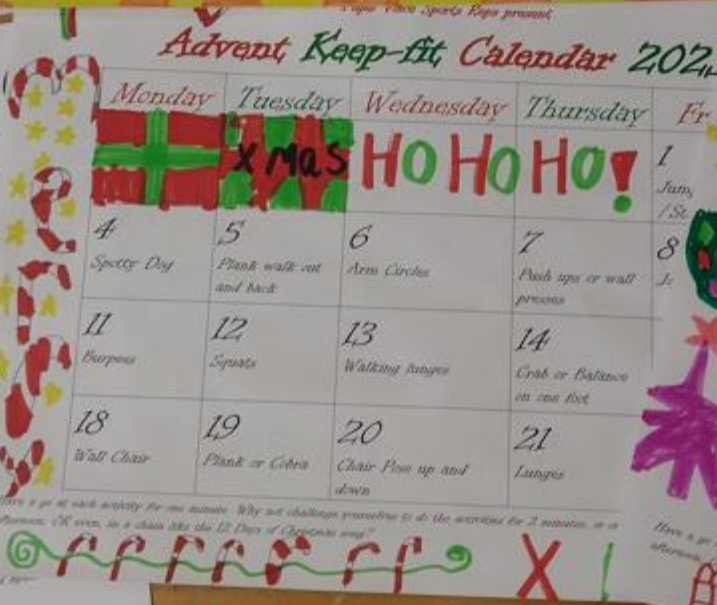 Sports Reps present
Advent Keep-fit Calendar 202
Monday Tuesday Wednesday Thursday Fr
xmas HO HO HO! 1
Jum
/ St
4 5 6 7 8
Spotty Dog Plank walk out Arm Circles Push ups or wall J
and back presses
11 12 13 14
Burpees Squats Walking lunges Crab or Balance
on one foot
18 19 20 21
Wall Chair Plank or Cobra Chair Pose up and Lunges
down
Have a go at each activity for one minute. Why not challenge yourselves to do the activities for 2 minutes, or a
afternoon, OR even, in a chain like the 12 Days of Christmas song? Have a go
afternoon,
X